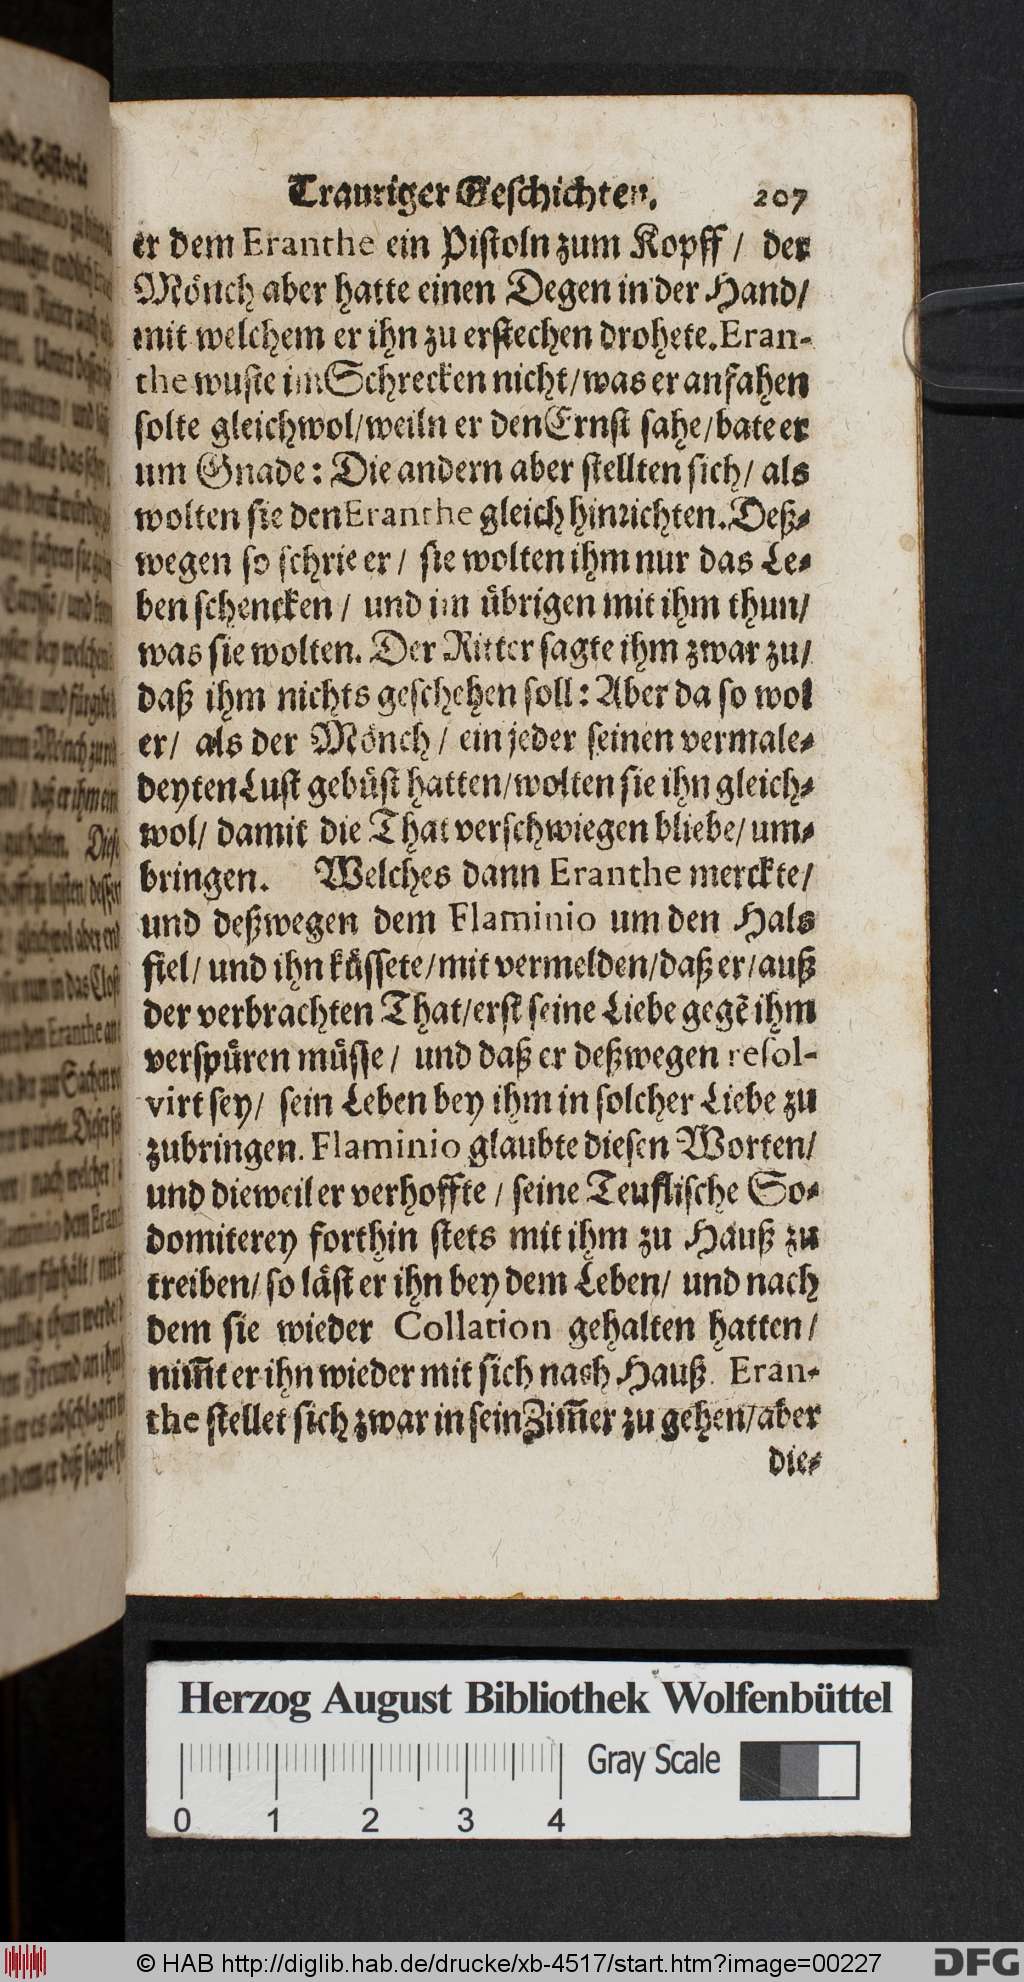 Trauriger Geſchichten. 207
er dem Eranthe ein Piſtoln zum Kopff / der
Mönch aber hatte einen Degen in der Hand/
mit welchem er ihn zu erſtechen drohete. Eran-
the wuſte im Schrecken nicht/ was er anfahen
ſolte gleichwol/ weiln er den Ernſt ſahe/ bate er
um Gnade: Die andern aber ſtellten ſich/ als
wolten ſie den Eranthe gleich hinrichten. Deß-
wegen ſo ſchrie er / ſie wolten ihm nur das Le-
ben ſchencken / und im übrigen mit ihm thun/
was ſie wolten. Der Ritter ſagte ihm zwar zu/
daß ihm nichts geſchehen ſoll: Aber da ſo wol
er/ als der Mönch / ein jeder ſeinen vermale-
deyten Luſt gebüſt hatten/ wolten ſie ihn gleich-
wol/ damit die That verſchwiegen bliebe/ um-
bringen. Welches dann Eranthe merckte/
und deßwegen dem Flaminio um den Hals
fiel/ und ihn küſſete/ mit vermelden/ daß er/ auß
der verbrachten That/ erſt ſeine Liebe gegē ihm
verſpüren müſſe / und daß er deßwegen reſol-
virt ſey/ ſein Leben bey ihm in ſolcher Liebe zu
zubringen. Flaminio glaubte dieſen Worten/
und dieweil er verhoffte / ſeine Teufliſche So-
domiterey forthin ſtets mit ihm zu Hauß zu
treiben/ ſo läſt er ihn bey dem Leben/ und nach
dem ſie wieder Collation gehalten hatten /
nim̃t er ihn wieder mit ſich nach Hauß. Eran-
the ſtellet ſich zwar in ſein Zim̃er zu gehen/ aber
die-
Herzog August Bibliothek Wolfenbüttel
Gray Scale
0 1 2 3 4
© HAB http://diglib.hab.de/drucke/xb-4517/start.htm?image=00227
DFG